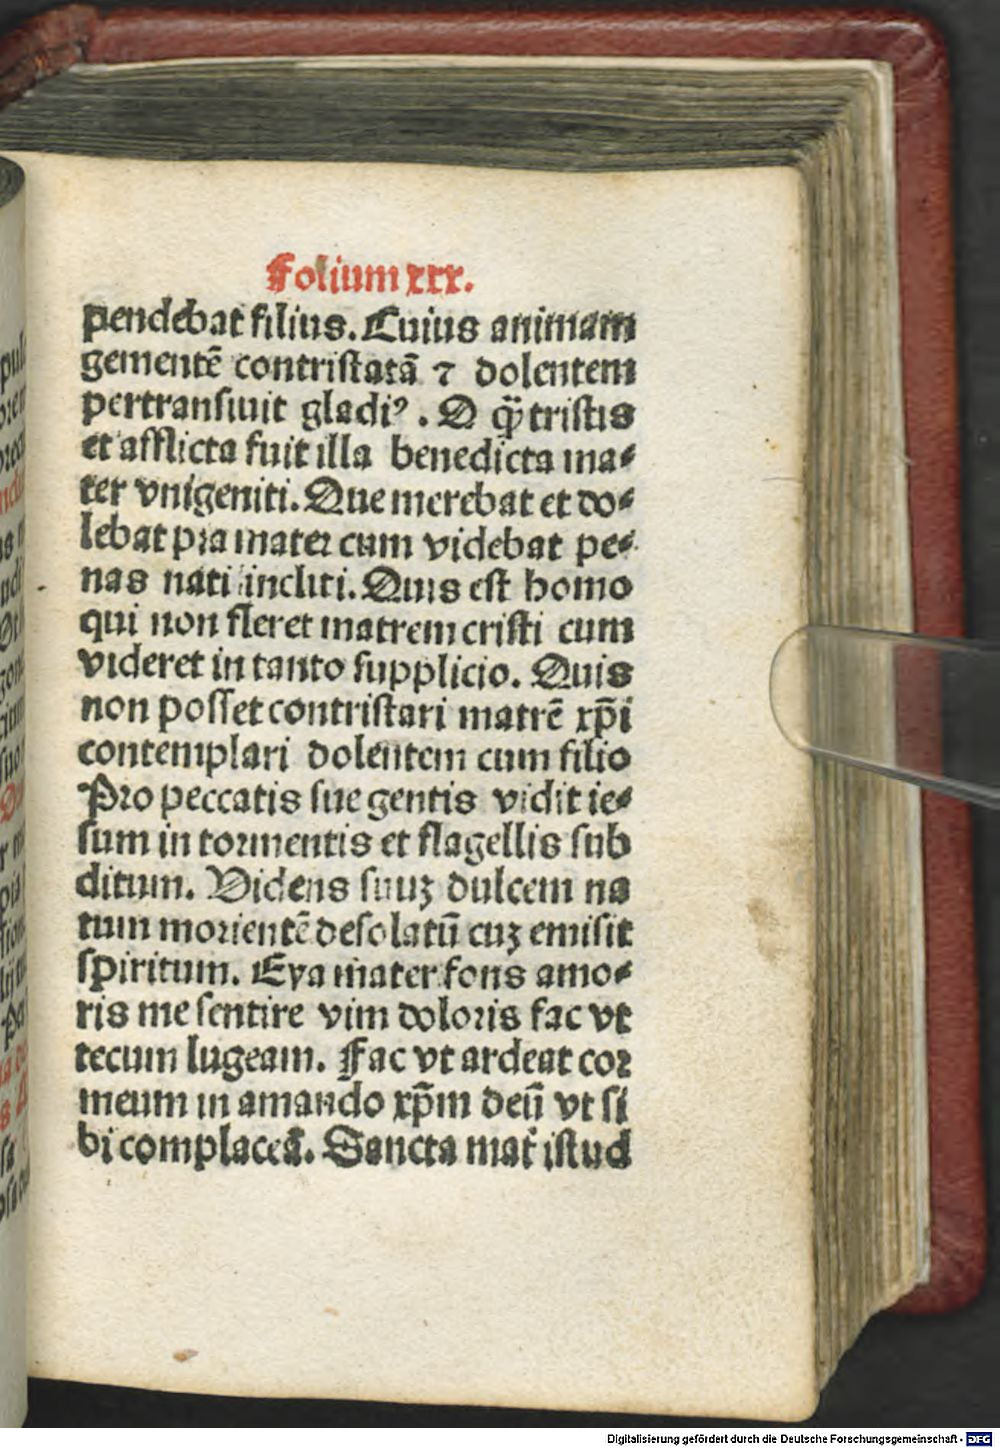 Folium xxx.
pendebat filius. Cuius animam
gementē contristatā ⁊ dolentem
pertransiuit gladiꝰ. O q̄ tristis
et afflicta fuit illa benedicta ma⸗
ter vnigeniti. Que merebat et do⸗
lebat pia mater cum videbat pe⸗
nas nati incliti. Quis est homo
qui non fleret matrem cristi cum
videret in tanto supplicio. Quis
non posset contristari matrē xp̄i
contemplari dolentem cum filio
Pro peccatis sue gentis vidit ie⸗
sum in tormentis et flagellis sub
ditum. Videns suuʒ dulcem na
tum morientē desolatū cuʒ emisit
spiritum. Eya mater fons amo⸗
ris me sentire vim doloris fac vt
tecum lugeam. Fac vt ardeat cor
meum in amando xp̄m deū vt si
bi complaceā. Sancta mat̄ istud
Digitalisierung gefördert durch die Deutsche Forschungsgemeinschaft - DFG